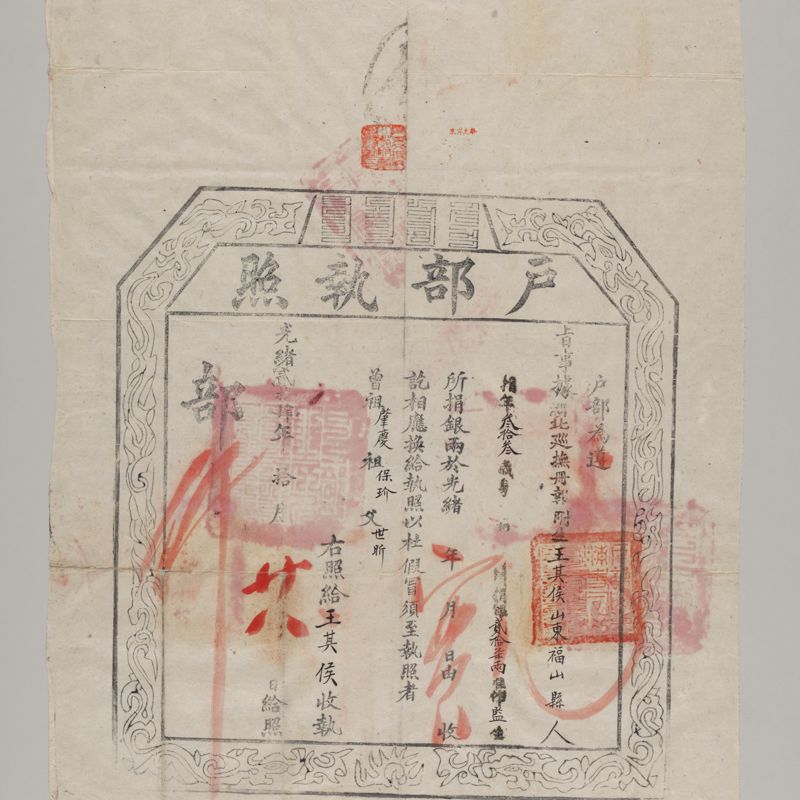 戶部執照
戶部為遵
旨事據湖北巡撫冊報附生王其侯山東福山縣人
年叁拾叁歲身 捐銀貳拾柒兩准作監生
所捐銀兩於光緒 年 月 日由 收
訖相應換給執照以杜假冒須至執照者
曾祖肇慶 祖保珍 父世昕
右照給王其侯收執
光緒貳拾肆年拾月廿八日給照
部